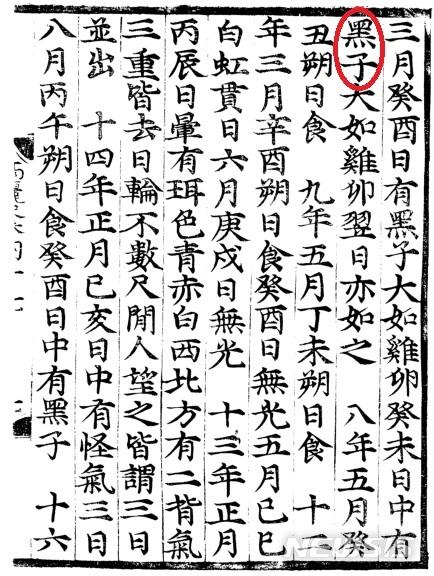 三月癸酉日有黑子大如雞卵癸未日中有
黑子大如雞卵翌日亦如之 八年五月癸
丑朔日食 九年五月丁未朔日食 十二
年三月辛酉朔日食癸酉日無光五月己巳
白虹貫日六月庚戌日無光 十三年正月
丙辰日暈有珥色青赤白西北方有二背氣
三重皆去日輪不數尺閒人望之皆謂三日
並出 十四年正月己亥日中有怪氣三日
八月丙午朔日食癸酉日中有黑子 十六